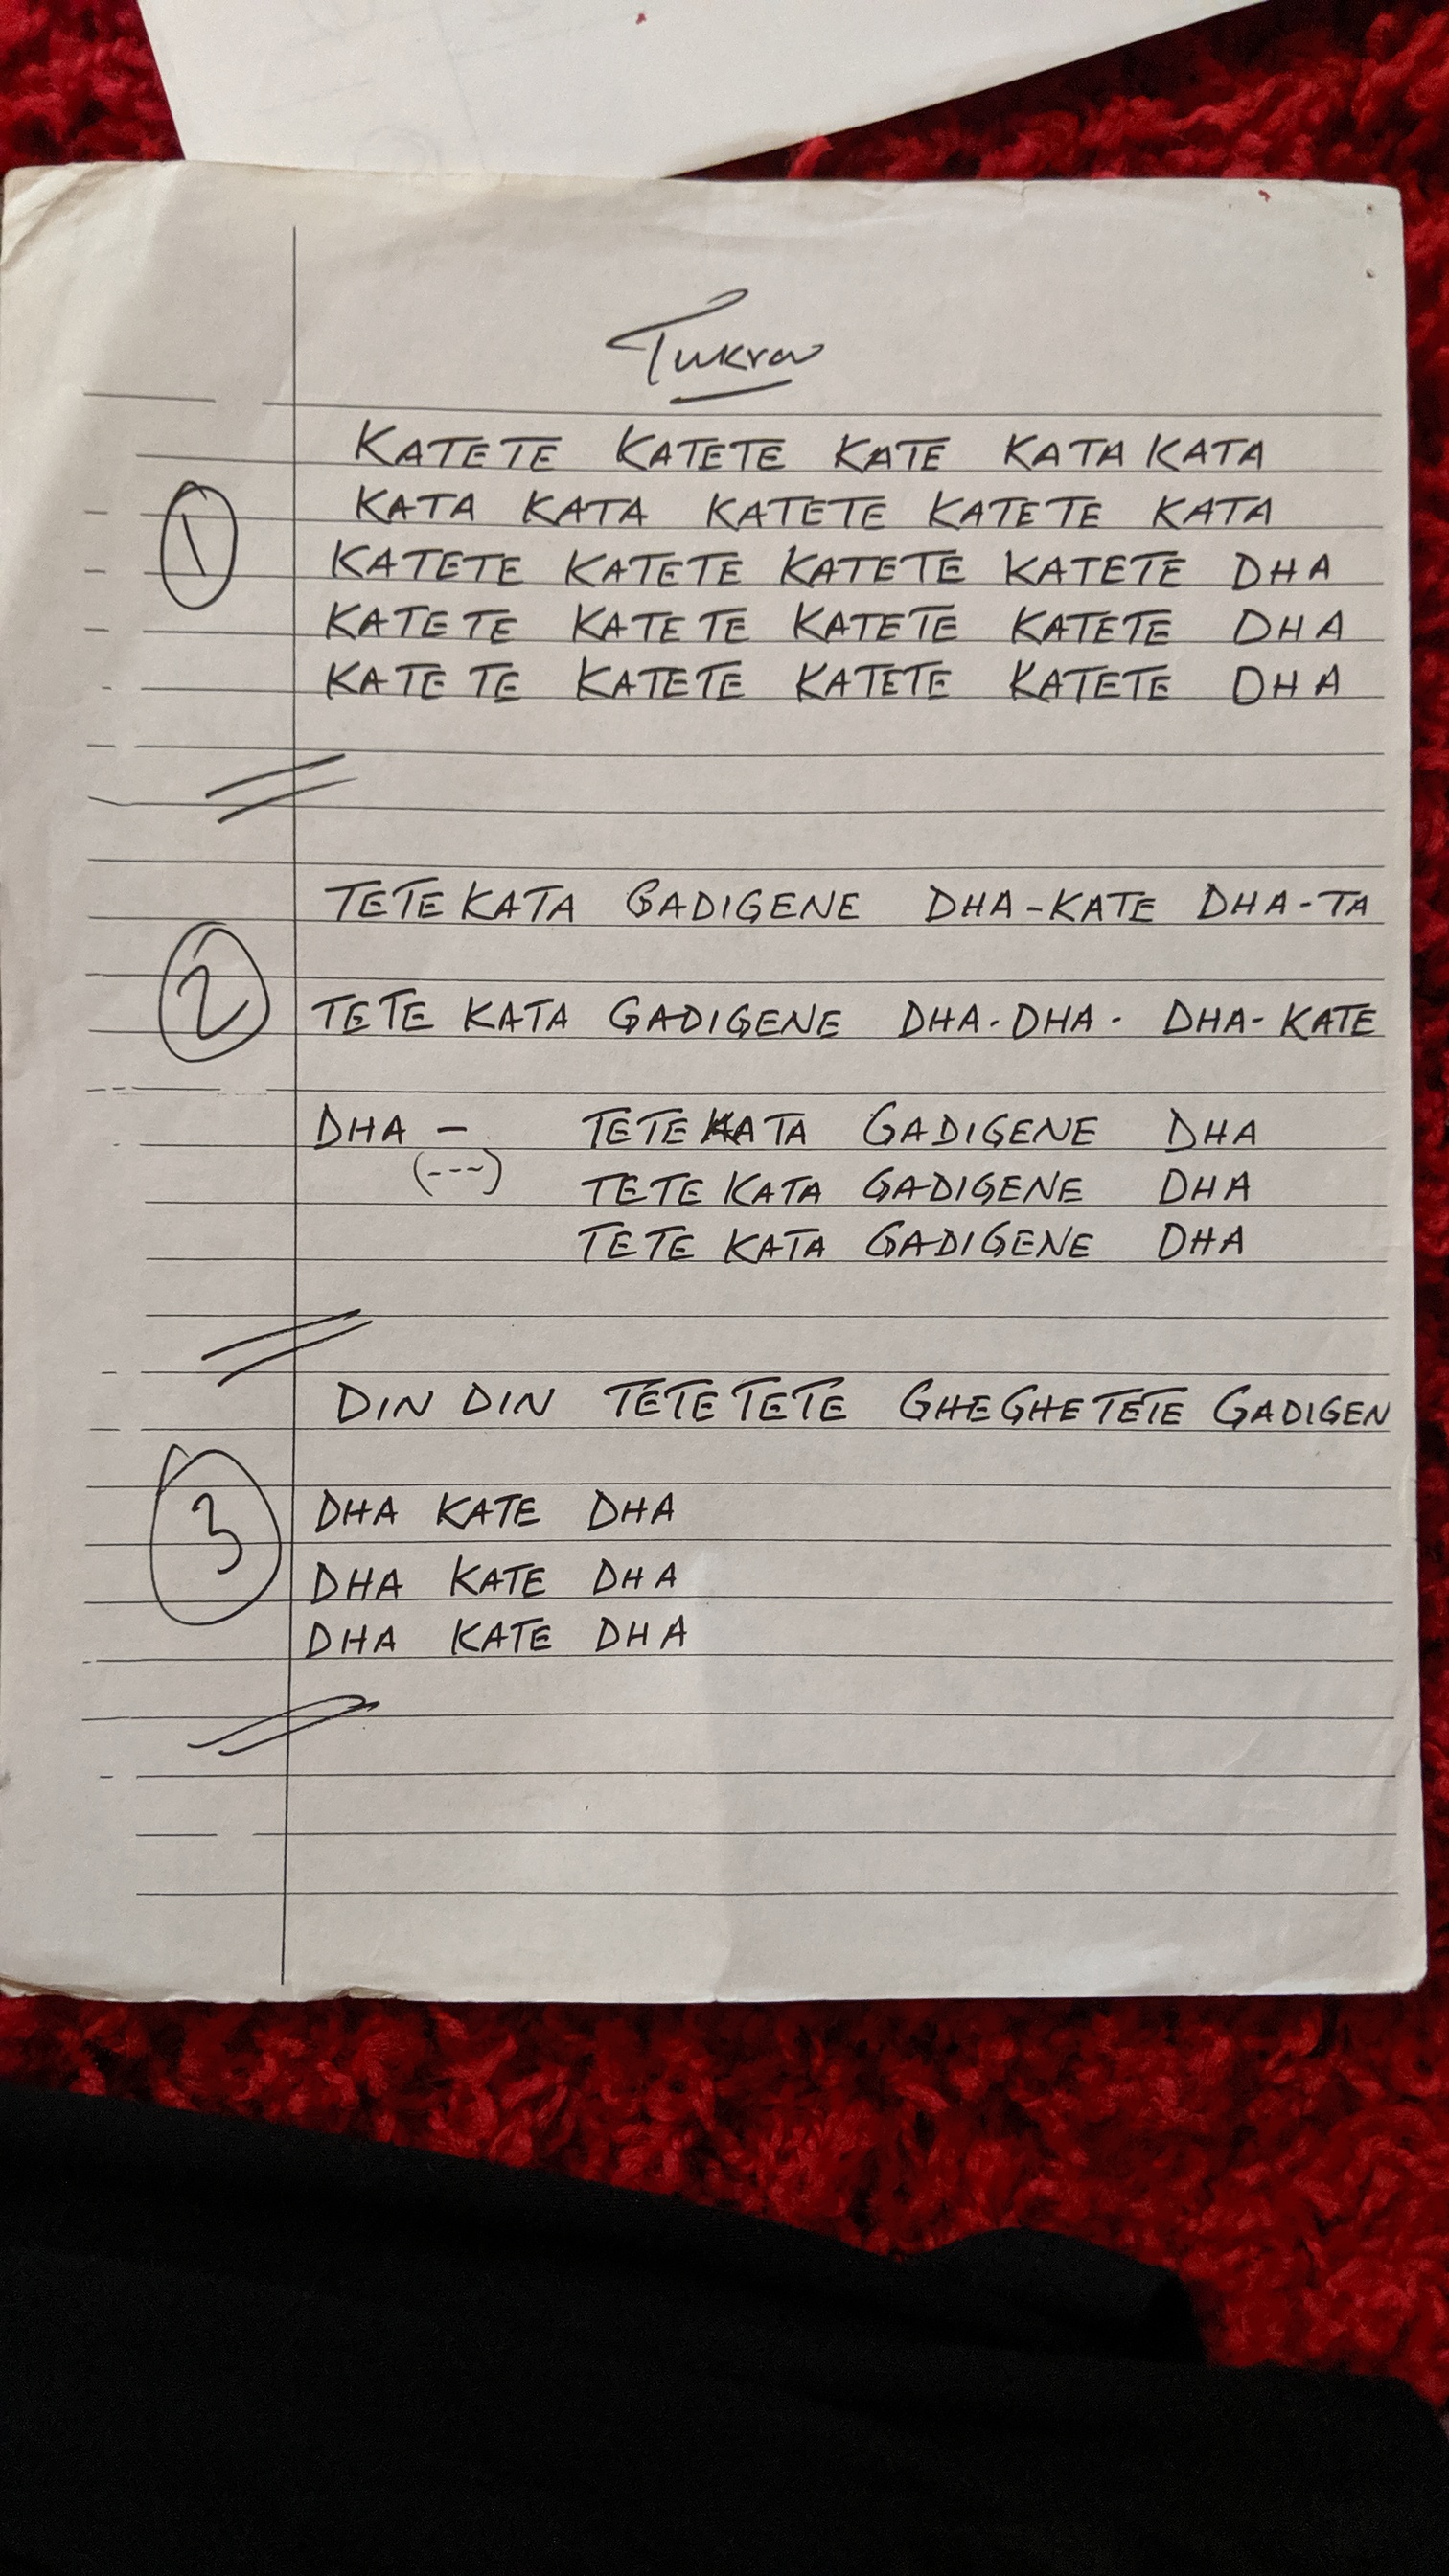 Tukra
KATETE KATETE KATE KATA KATA
1
KATA KATA KATETE KATETE KATA
KATETE KATETE KATETE KATETE DHA
KATETE KATETE KATETE KATETE DHA
KATETE KATETE KATETE KATETE DHA
TETEKATA GADIGENE DHA-KATE DHA-TA
2
TETE KATA GADIGENE DHA-DHA- DHA-KATE
DHA - TETEKATA GADIGENE DHA
(---) TETE KATA GADIGENE DHA
TETE KATA GADIGENE DHA
DIN DIN TETETETE GHEGHETETE GADIGEN
3
DHA KATE DHA
DHA KATE DHA
DHA KATE DHA